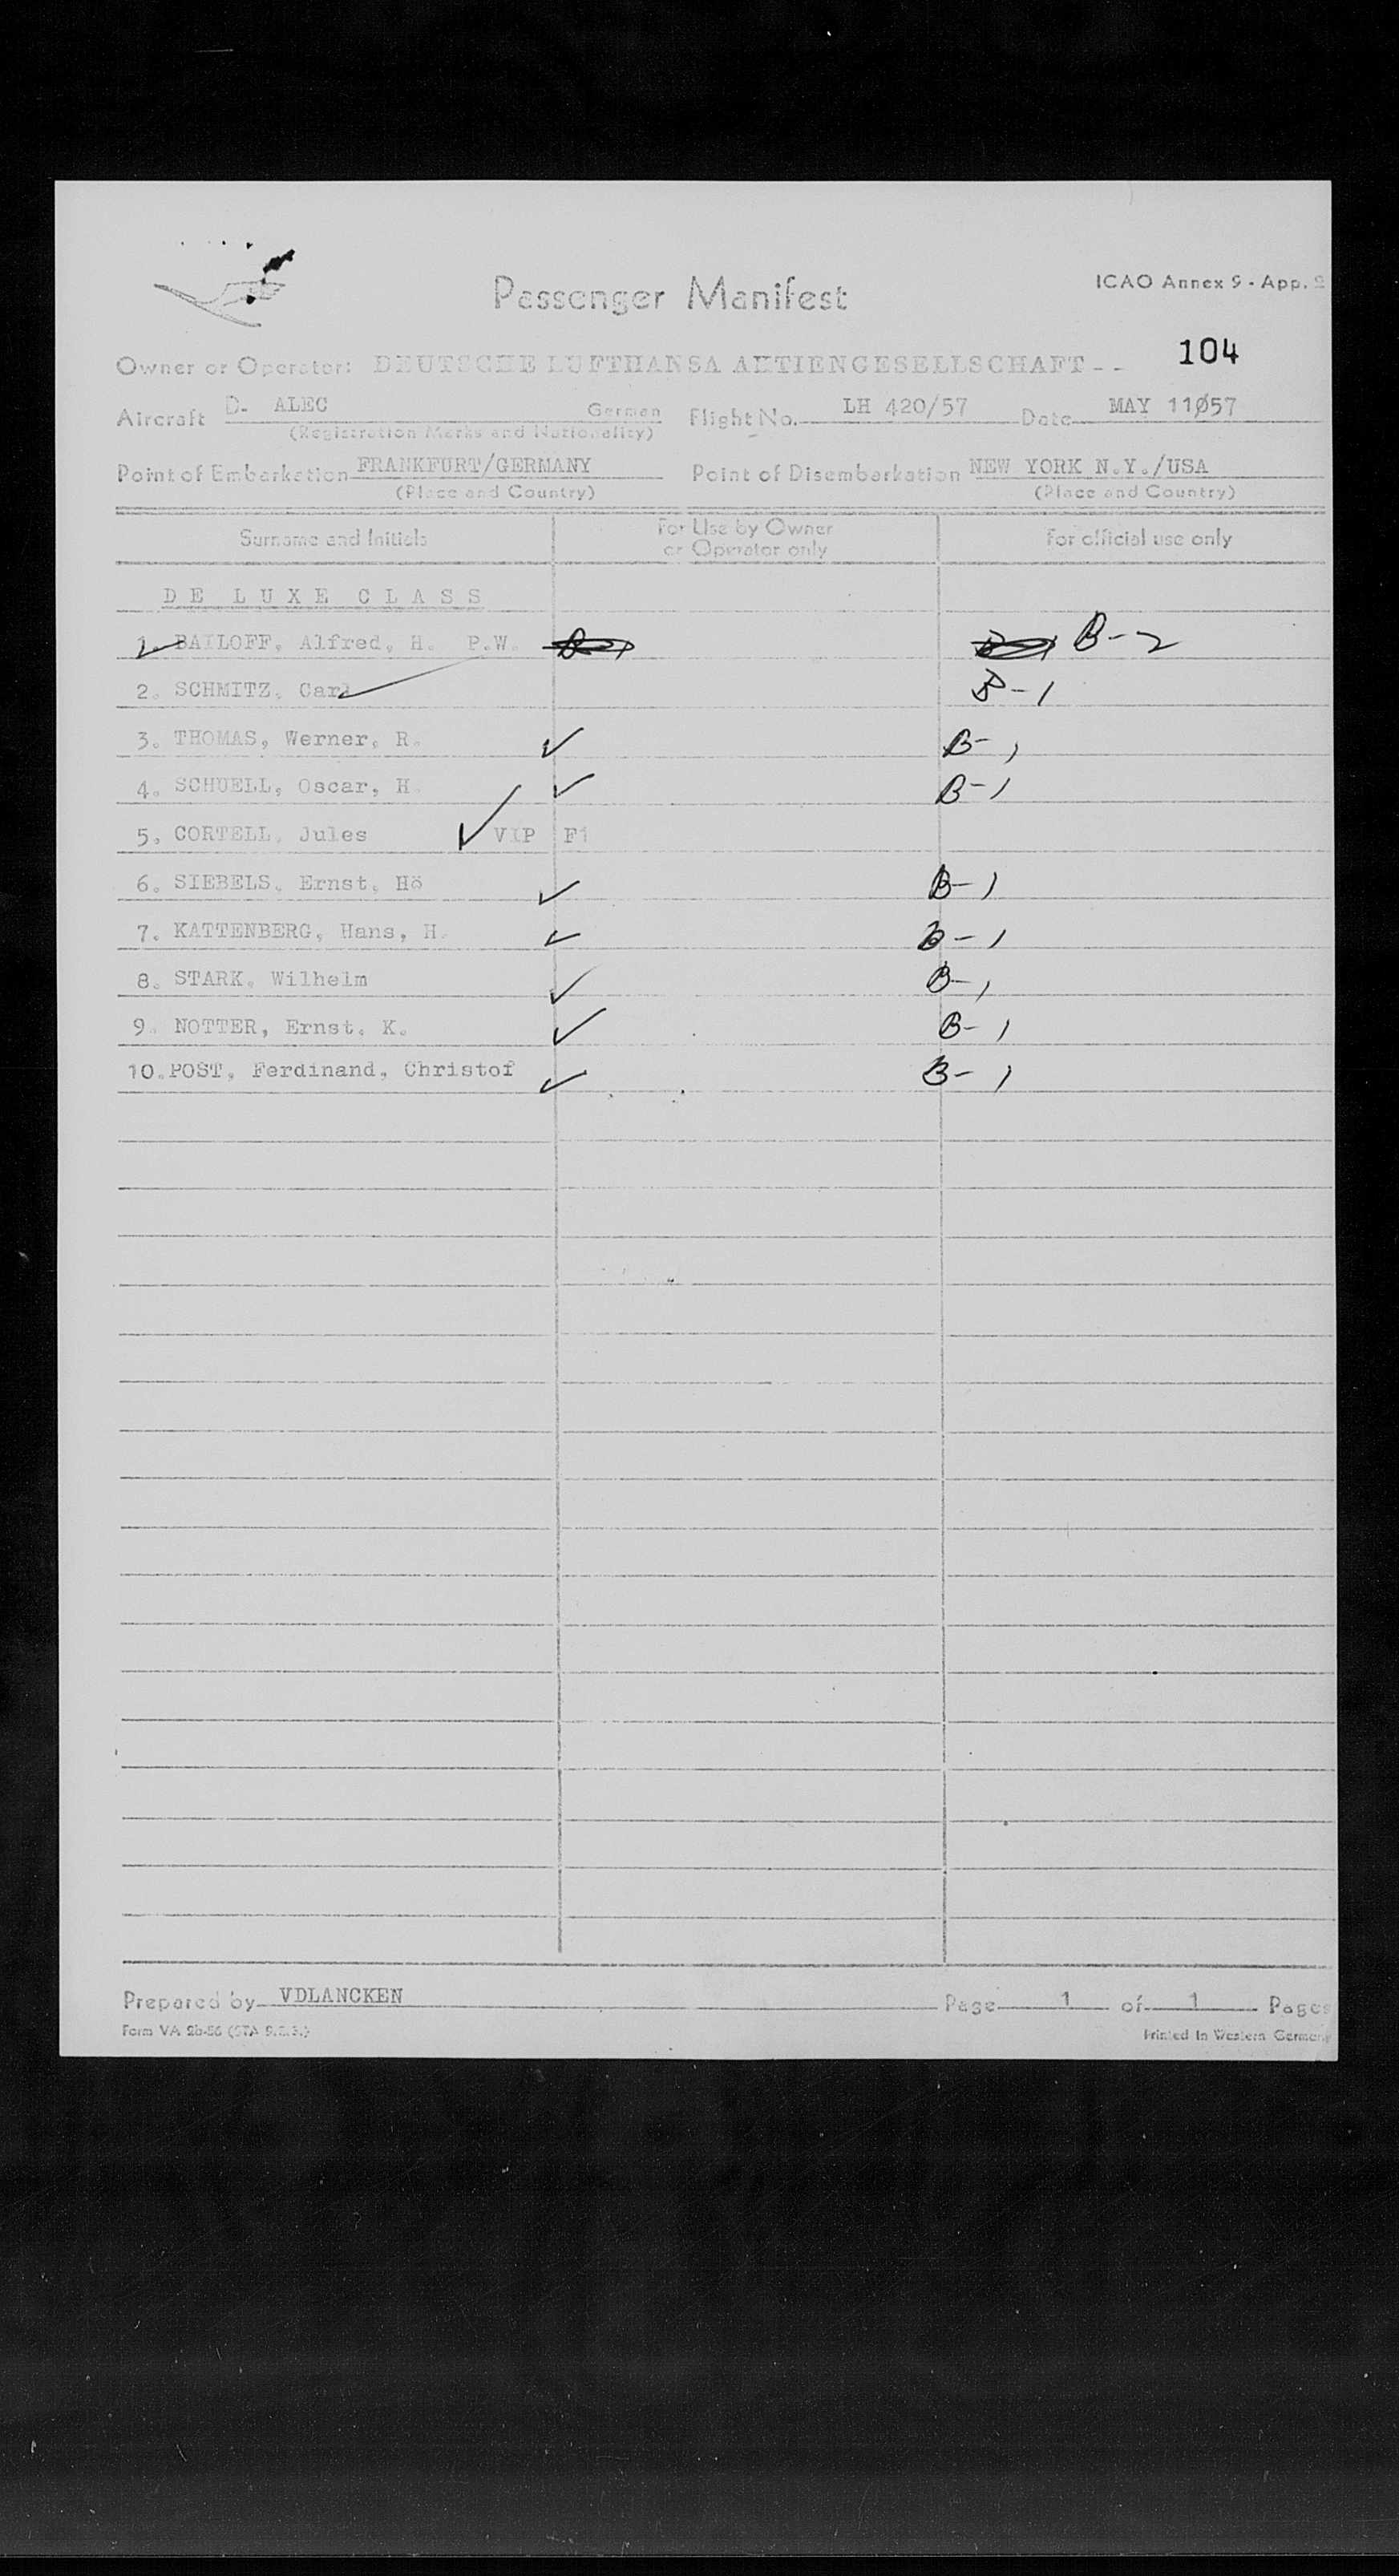 Passenger Manifest
ICAO Annex 9 - App. 2
104
Owner or Operator: DEUTSCHE LUFTHANSA AKTIENGESELLSCHAFT --
Aircraft D- ALEC German Flight No. LH 420/57 Date MAY 11ø57
(Registration Marks and Nationality)
Point of Embarkation FRANKFURT/GERMANY Point of Disembarkation NEW YORK N.Y./USA
(Place and Country) (Place and Country)
Surname and Initials For Use by Owner or Operator only For official use only
DE LUXE CLASS
1. BAILOFF, Alfred, H. P.W. B-2
2. SCHMITZ, Carl B-1
3. THOMAS, Werner, R. ✓ B-1
4. SCHUELL, Oscar, H. ✓ B-1
5. CORTELL, Jules ✓ VIP F1
6. SIEBELS, Ernst, Hö ✓ B-1
7. KATTENBERG, Hans, H. ✓ B-1
8. STARK, Wilhelm ✓ B-1
9. NOTTER, Ernst, K. ✓ B-1
10. POST, Ferdinand, Christof ✓ B-1
Prepared by VDLANCKEN Page 1 of 1 Pages
Form VA 2b-56 Printed in Western Germany